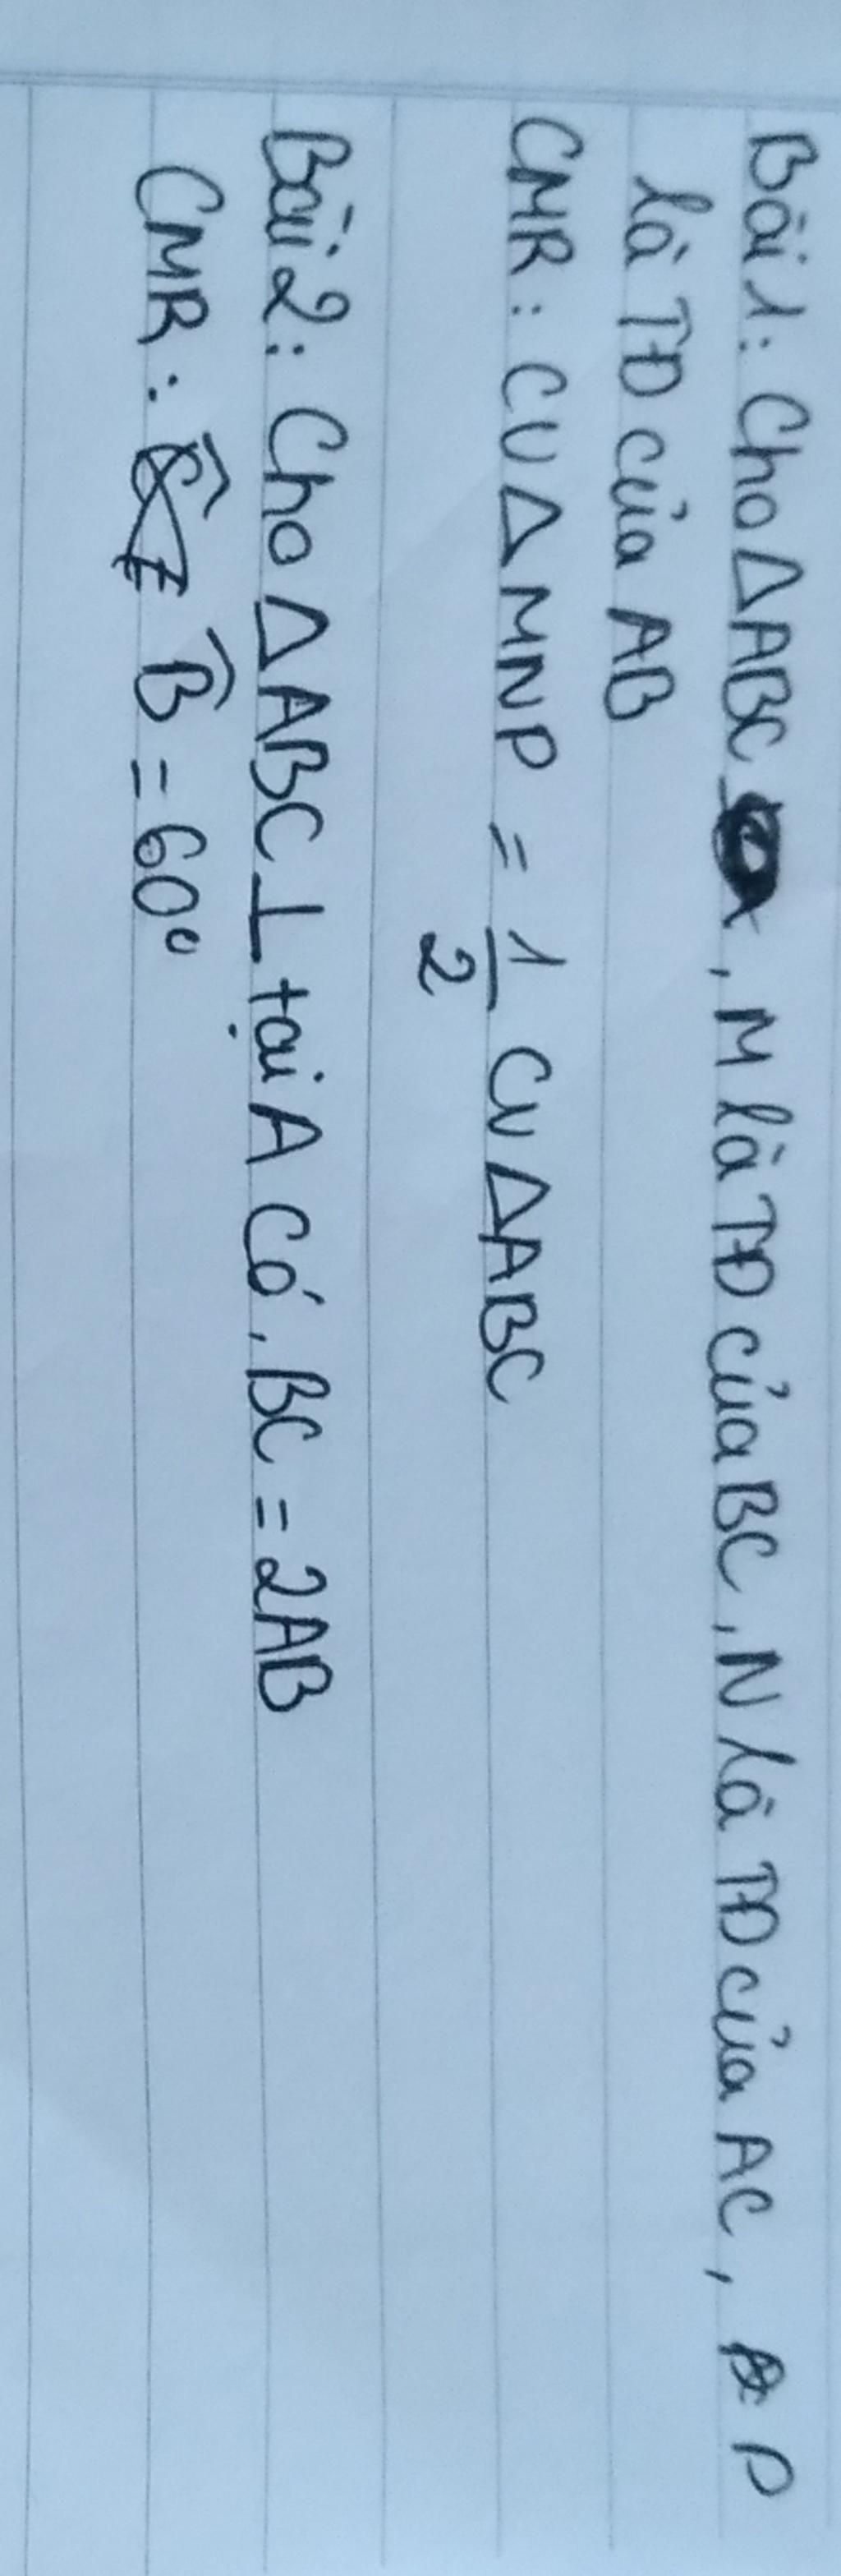 Bài 1: Cho △ABC, M là TĐ của BC, N là TĐ của AC, P
là TĐ của AB
CMR: CV △MNP = 1/2 CV △ABC
Bài 2: Cho △ABC ⊥ tại A có, BC = 2AB
CMR: B̂ = 60°